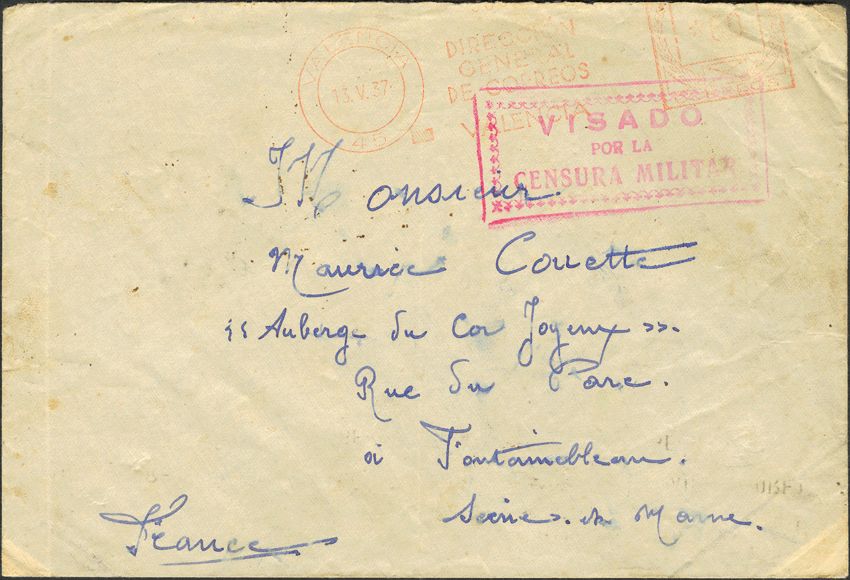 VALENCIA
13.V.37
45
DIRECCIÓN
GENERAL
DE CORREOS
VALENCIA
VISADO
POR LA
CENSURA MILITAR
Monsieur
Maurice Couette
"Auberge du Cor Joyeux".
Rue du Parc.
à Fontainebleau.
Seine. et. Marne.
France